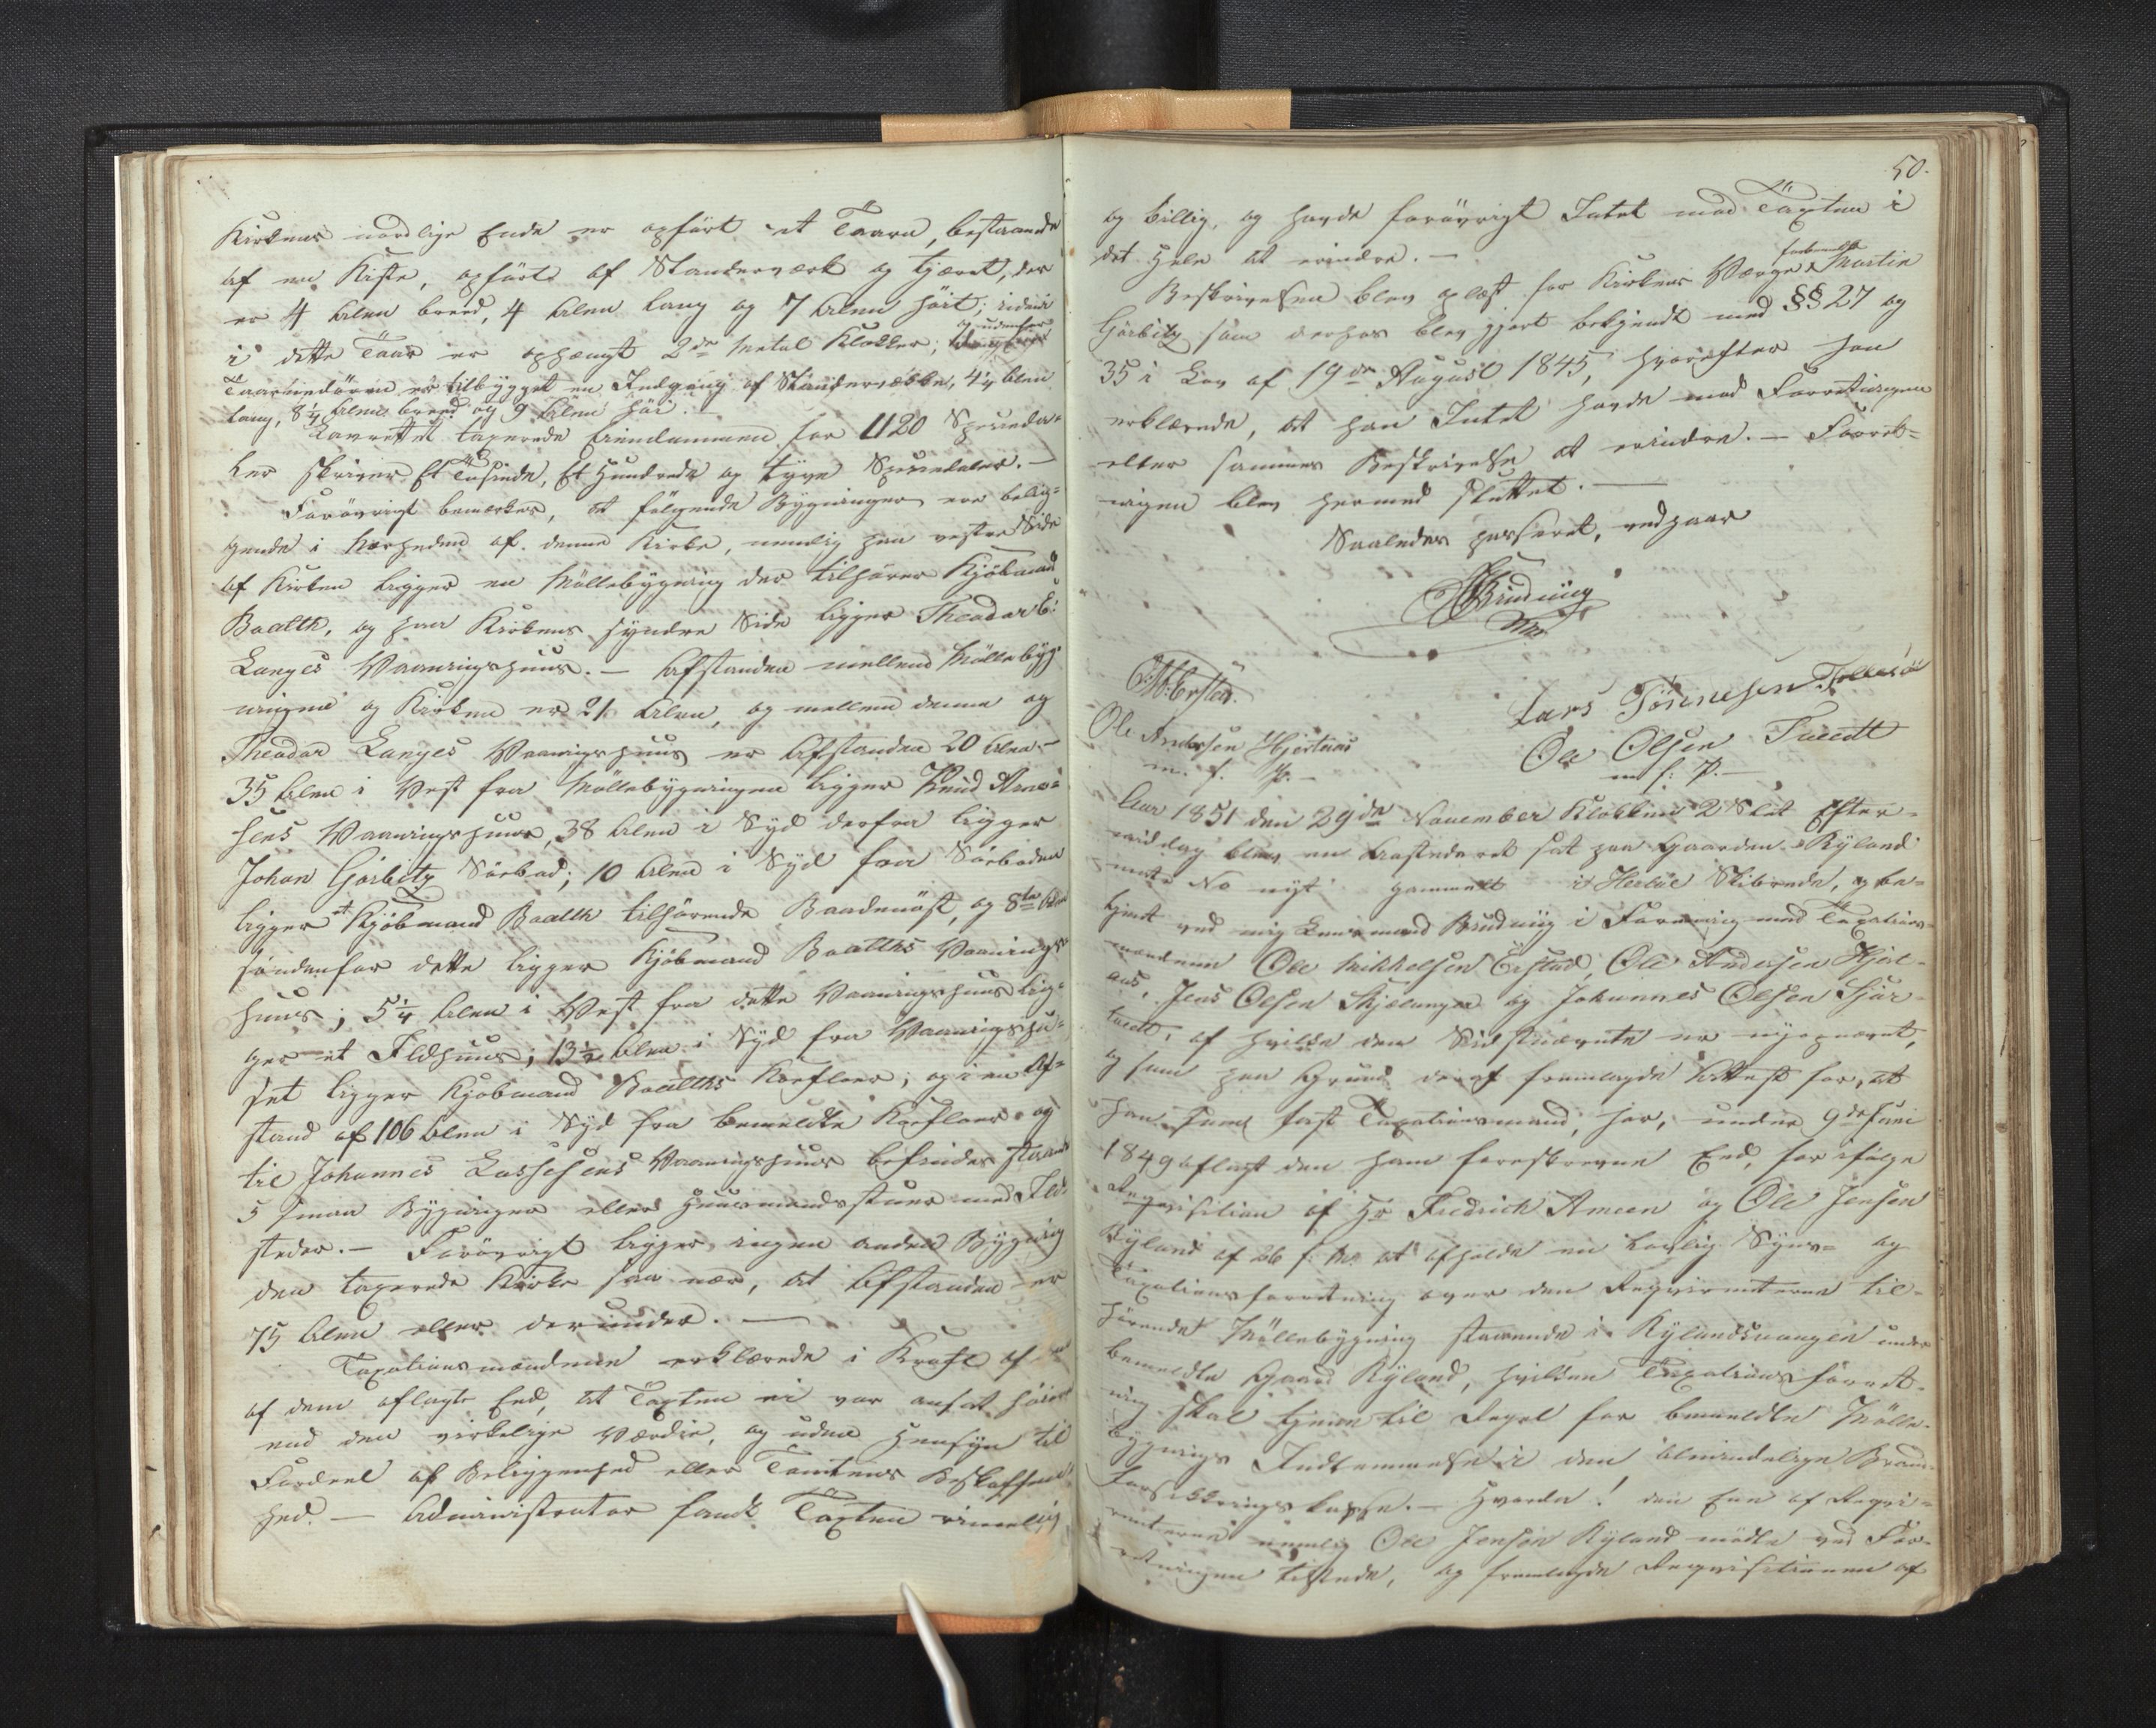 Kirkens nordlige Ende er opført et Taarn, bestaaende
af en Kiste, opført af Standerværk og tjæret, der
er 4 Alen breed, 4 Alen lang og 7 Alen høit;
i dette Taar er ophængt 2de Metal Klokker; og udenfor
Taarnedøren er tilbygget en Indgang af Standerværk, 4¼ Alen
lang, 8¼ Alens breed og 9 Alen høi.
Lavrettet taxerede Eiendommen for 1120 Specieda-
ler skriver Et Tusinde, Et Hundrede og tyve Speciedaler. —
Forøvrigt bemærkes, at følgende Bygninger ere belig-
gende i Nærheden af denne Kirke, nemlig paa vestre Side
af Kirken ligger en Møllebygning der tilhører Kjøbmand
Baalth, og paa Kirkens søndre Side ligger Theodor E:
Langes Vaaningshuus. — Afstanden mellem Møllebyg-
ningen og Kirken er 21 Alen, og mellem denne og
Theodor Langes Vaaningshuus er Afstanden 20 Alen. —
35 Alen i Vest fra Møllebygningen ligger Knud Arne-
sens Vaaningshuus, 38 Alen i Syd derfra ligger
Johan Gørbitz Søebod; 10 Alen i Syd fra Søeboden
ligger et Kjøbmand Baalth tilhørende Baadenøst, og 8te Alen
søndenfor dette ligger Kjøbmand Baalths Vaanings-
huus; 5¼ Alen i Vest fra dette Vaaningshuus lig-
ger et Ildhuus; 13½ Alen i Syd fra Vaaningshu-
set ligger Kjøbmand Baalths Koefloer; og i en Af-
stand af 106 Alen i Syd fra bemeldte Koefloer og
til Johannes Lassesens Vaaningshuus befindes staaende
5 smaa Bygninger eller Huusmandsstuer med Ild-
steder. — Forøvrigt ligger ingen anden Bygning
den taxerede Kirke saa nær, at Afstanden er
75 Alen eller derunder. —
Taxationsmændene erklærede i Kraft af den
af dem aflagte Eed, at Taxten ei var ansat høiere
end den virkelige Værdie, og uden Hensyn til
Fordeel af Beliggenhed eller Tomtens Beskaffen-
hed. — Administrator fandt Taxten rimelig
50.
og billig, og havde forøvrigt Intet mod Taxten i
det Hele at erindre. —
Beskrivelsen blev oplæst for Kirkens Værge Martin
Gørbitz som derhos blev gjort bekjendt med §§ 27 og
35 i Lov af 19de August 1845, hvorefter han
erklærede, at han Intet havde mod Forretningen
eller sammes Beskrivelse at erindre. — Forret-
ningen blev hermed sluttet. —
Saaledes passeret, vedgaar
Bruduig
Lars Tønnesen Follesøe
Ole Andersen Hjertaas
m. f. P. —
Ole Olsen Tveedt
m f: P. —
Aar 1851 den 29de November Klokken 2 Slet Efter-
middag blev en Aastedsret sat paa Gaarden Ryland
matr No nyt gammelt i Herløe Skibrede, og be-
tjent ved mig Lensmand Bruduig i Forening med Taxations-
mændene Ole Mikkelsen Erstad, Ole Andersen Hjert-
aas, Jens Olsen Skjelanger og Johannes Olsen
tvedt, af hvilke den Sidstnævnte er nyopnævnt,
og som paa Grund deraf fremlagde Attest for, at
han som fast Taxationsmand, har, under 9de Juni
1849 aflagt den ham foreskrevne Eed, for ifølge
Reqvisition af Hr Fredrich Ameen og Ole Jensen
Ryland af 26 f: M. at afholde en lovlig Syns- og
Taxationsforretning over den Reqvirenterne til-
hørende Møllebygning staaende i Rylandsvaagen under
bemeldte Gaard Ryland, hvilken Taxationsforret-
ning skal tjene til Regel for bemeldte Mølle-
bygnings Indlemmelse i den almindelige Brand-
Forsikkringskasse. — Hvorda! den Ene af Reqvi-
renterne nemlig Ole Jensen Ryland mødte ved For-
retningen tilstede, og fremlagde Reqvisitionen af